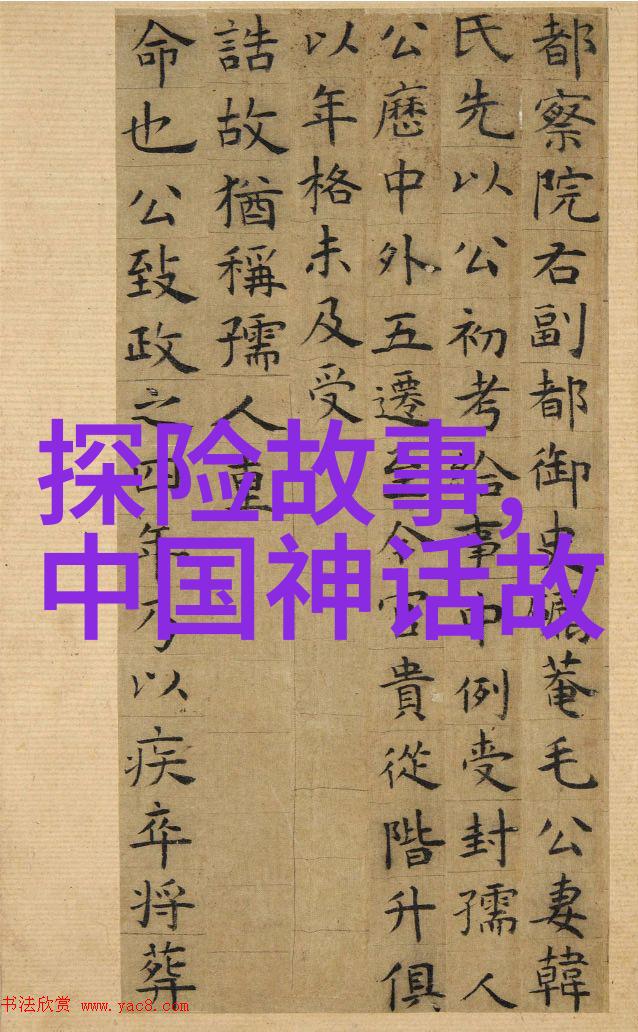 都察院右副都御史菴毛公妻韓
氏先以公初考給事中例受封孺人
公歷中外五遷至今官貴從階升俱
以年格未及受
誥故猶稱孺人重
命也公致政之四年乃以疾卒將葬
探险故事,
中国神话故
书法欣赏 www.yac8.com